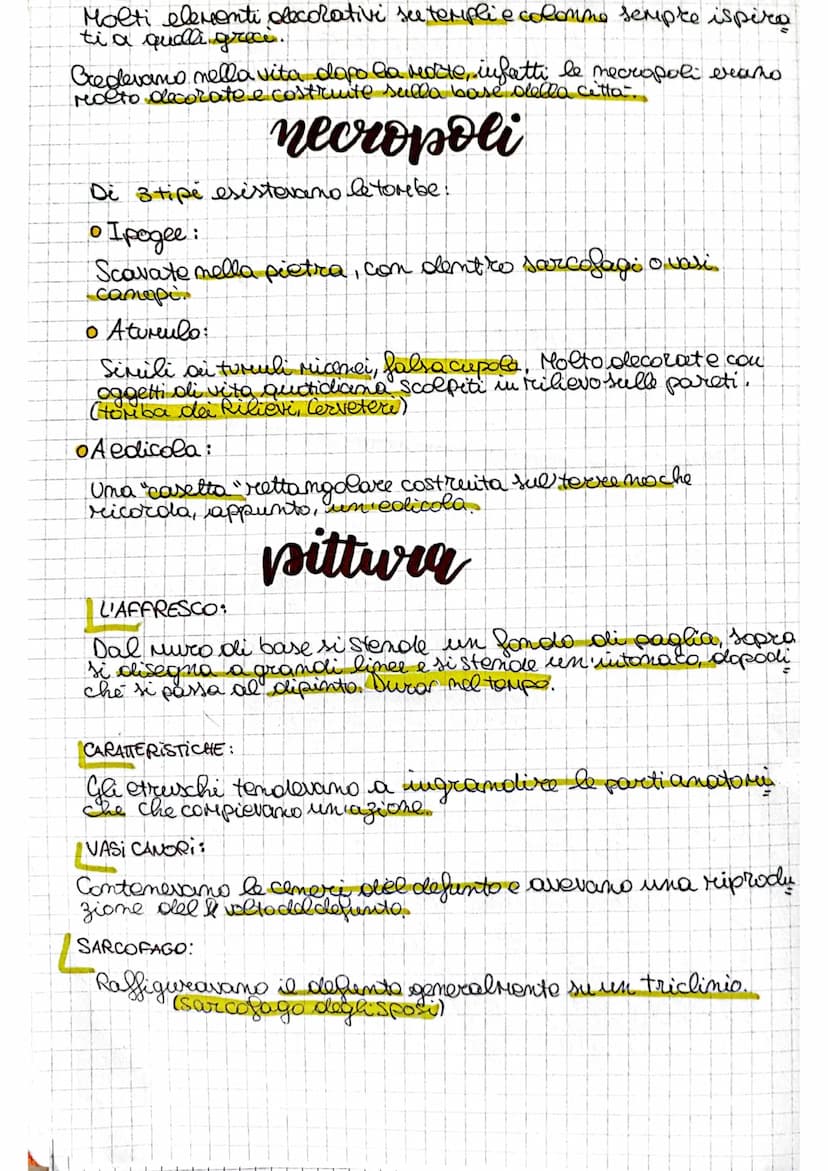 Molti elementi decorativi su templi e colonne sempre ispira
ti a quelli greci.
Credevano nella vita dopo la morte, infatti le necropoli erano
molto decorate e costruite sulla base della città.
necropoli
Di 3 tipi esistevano le tombe:
Ipogee:
Scavate nella pietra, con dentro sarcofagi o vasi
canopi.
A tumulo:
Simili ai tumuli micenei, falsa cupola. Molto decorate con
oggetti di vita quotidiana scolpiti in rilievo sulle pareti.
(tomba dei Rilievi, Cerveteri)
A edicola:
Una "casetta" rettangolare costruita sul terreno che
ricorda, appunto, un'edicola.
pittura
L'AFFRESCO:
Dal muro di base si stende un fondo di paglia, sopra
si disegna a grandi linee e si stende un'intonaco, dopodi
chè si passa al dipinto. Durar nel tempo.
CARATTERISTICHE:
Gli etruschi tendevano a ingrandire le parti anatomi
che che compievano un'azione.
VASI CANOPI:
Contenevano le ceneri del defunto e avevano una riprodu
zione del volto del defunto.
SARCOFAGO:
Raffiguravano il defunto generalmente su un triclinio.
(sarcofago degli sposi)